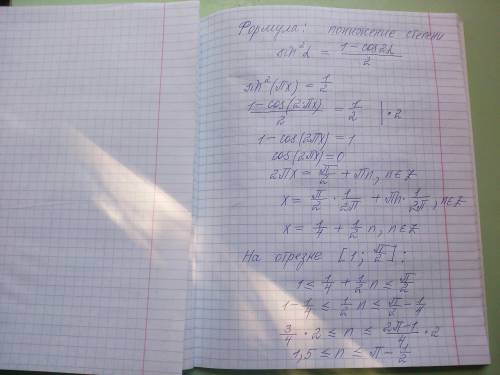 Формула: понижение степени
sin²α = (1-cos2α)/2
sin²(πx) = 1/2
(1-cos(2πx))/2 = 1/2 | · 2
1-cos(2πx) = 1
cos(2πx)=0
2πx = π/2 + πn, n∈Z
x = π/2 · 1/2π + πn · 1/2π, n∈Z
x = 1/4 + 1/2 n, n∈Z
На отрезке [1; π/2]:
1 ≤ 1/4 + 1/2 n ≤ π/2
1 - 1/4 ≤ 1/2 n ≤ π/2 - 1/4
3/4 · 2 ≤ n ≤ (2π-1)/4 · 2
1,5 ≤ n ≤ π - 1/2